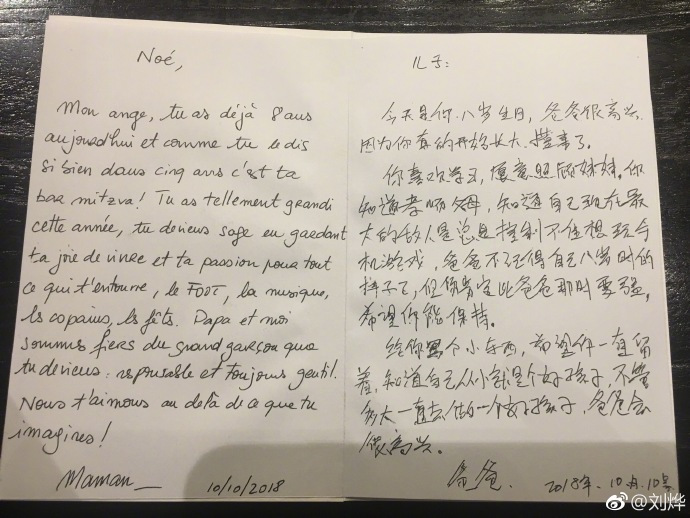 Noé,
Mon ange, tu as déjà 8 ans
aujourd'hui et comme tu le dis
si bien dans cinq ans c'est ta
bar mitzva! Tu as tellement grandi
cette année, tu deviens sage en gardant
ta joie de vivre et ta passion pour tout
ce qui t'entoure, le FOOT, la musique,
les copains, les fêts. Papa et moi
sommes fiers du grand garçon que
tu deviens: responsable et toujours gentil.
Nous t'aimons au delà de ce que tu
imagines!
Maman
10/10/2018
儿子:
今天是你八岁生日,爸爸很高兴,
因为你真的开始长大、懂事了。
你喜欢学习,愿意照顾妹妹。你
知道孝顺父母,知道自己现在最
大的敌人是总是控制不住想玩手
机游戏,爸爸不记得自己八岁时的
样子了,但你肯定比爸爸那时要强,
希望你能保持。
给你写个小东西,希望你一直留
着,知道自己从小就是个好孩子,不管
多大一直去做一个好孩子,爸爸会
很高兴。
爸爸
2018年.10月.10号
@刘烨